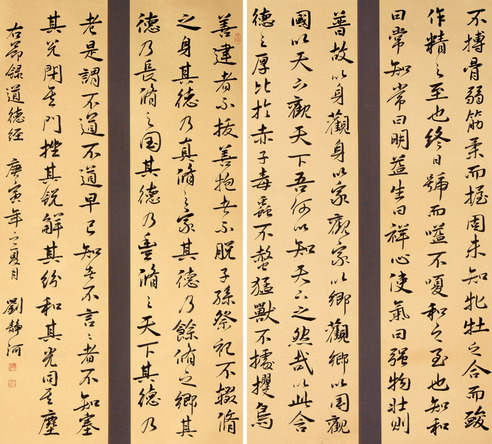 善建者不拔善抱者不脫子孫祭祀不輟脩
之身其德乃真脩之家其德乃餘脩之鄉其
德乃長脩之国其德乃豐脩之天下其德乃
普故以身觀身以家觀家以鄉觀鄉以國觀
國以天下觀天下吾何以知天下之然哉以此含
德之厚比於赤子毒蟲不螫猛獸不據攫鳥
不搏骨弱筋柔而握固未知牝牡之合而朘
作精之至也終日號而嗌不嗄和之至也知和
曰常知常曰明益生曰祥心使氣曰强物壯則
老是謂不道不道早已知者不言言者不知塞
其兌閉其門挫其銳解其紛和其光同其塵
右節錄道德經 庚寅年之夏月 劉靜河